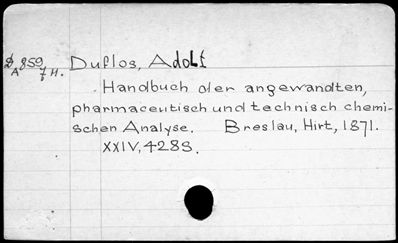 D 859, Duflos, Adolf
A 7 H.
Handbuch der angewandten,
pharmaceutisch und technisch chemi-
schen Analyse. Breslau, Hirt, 1871.
XXIV, 428 S.